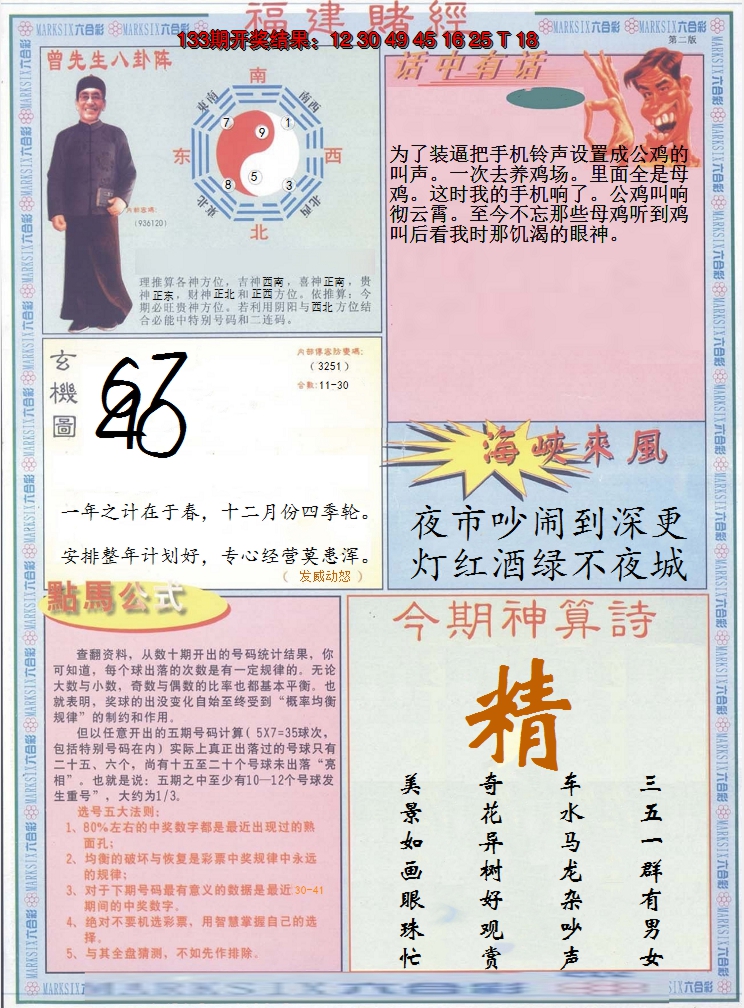 福建賭經
133期开奖结果：12 30 49 45 16 25 T 18
第二版
MARKSIX六合彩
曾先生八卦阵
南
東南
南西
7
9
1
东
西
8
5
3
東北
北西
北
內部密碼:
(936120)
理推算各神方位，吉神西南，喜神正南，贵
神正东，财神正北和正西方位。依推算：今
期必旺贵神方位。若利用阴阳与西北方位结
合必能中特别号码和二连码。
话中有话
为了装逼把手机铃声设置成公鸡的
叫声。一次去养鸡场。里面全是母
鸡。这时我的手机响了。公鸡叫响
彻云霄。至今不忘那些母鸡听到鸡
叫后看我时那饥渴的眼神。
玄機圖
(3251)
合数:11-30
一年之计在于春，十二月份四季轮。
安排整年计划好，专心经营莫患浑。
（ 发威动怒 ）
海峽來風
夜市吵闹到深更
灯红酒绿不夜城
點馬公式
查翻资料，从数十期开出的号码统计结果，你
可知道，每个球出落的次数是有一定规律的。无论
大数与小数，奇数与偶数的比率也都基本平衡。也
就表明，奖球的出没变化自始至终受到“概率均衡
规律”的制约和作用。
但以任意开出的五期号码计算( 5X7=35球次，
包括特别号码在内) 实际上真正出落过的号球只有
二十五、六个，尚有十五至二十个号球未出落“亮
相”。也就是说：五期之中至少有10—12个号球发
生重号”，大约为1/3。
选号五大法则：
1、80%左右的中奖数字都是最近出现过的熟
面孔；
2、均衡的破坏与恢复是彩票中奖规律中永远
的规律；
3、对于下期号码最有意义的数据是最近30-41
期间的中奖数字。
4、绝对不要机选彩票，用智慧掌握自己的选
择。
5、与其全盘猜测，不如先作排除.
今期神算詩
精
三五一群有男女
车水马龙杂吵声
奇花异树好观赏
美景如画眼珠忙